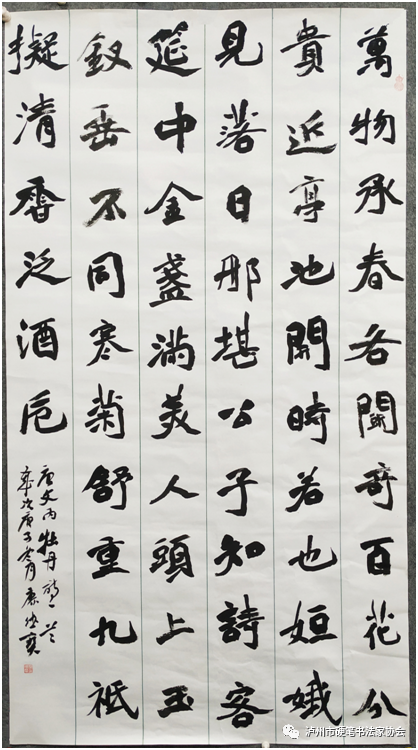 萬物承春各鬪奇百花分
貴近亭池開時若也姮娥
見落日那堪公子知詩客
筵中金盞滿美人頭上玉
釵垂不同寒菊舒重九祗
擬清香泛酒卮
唐文丙牡丹詩一首
歲次庚子月康
泸州市硬笔书法家协会